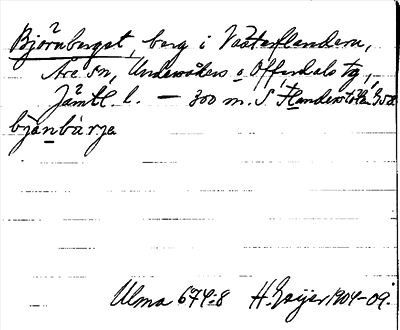 Björnberget, berg i Västerflandern,
Åre sn, Undersåkers o Offerdals tg,
Jämtl. l. — 300 m. S.
bjø̀nbàrja
Ulma 674:8 H. Geijer 1904-09.